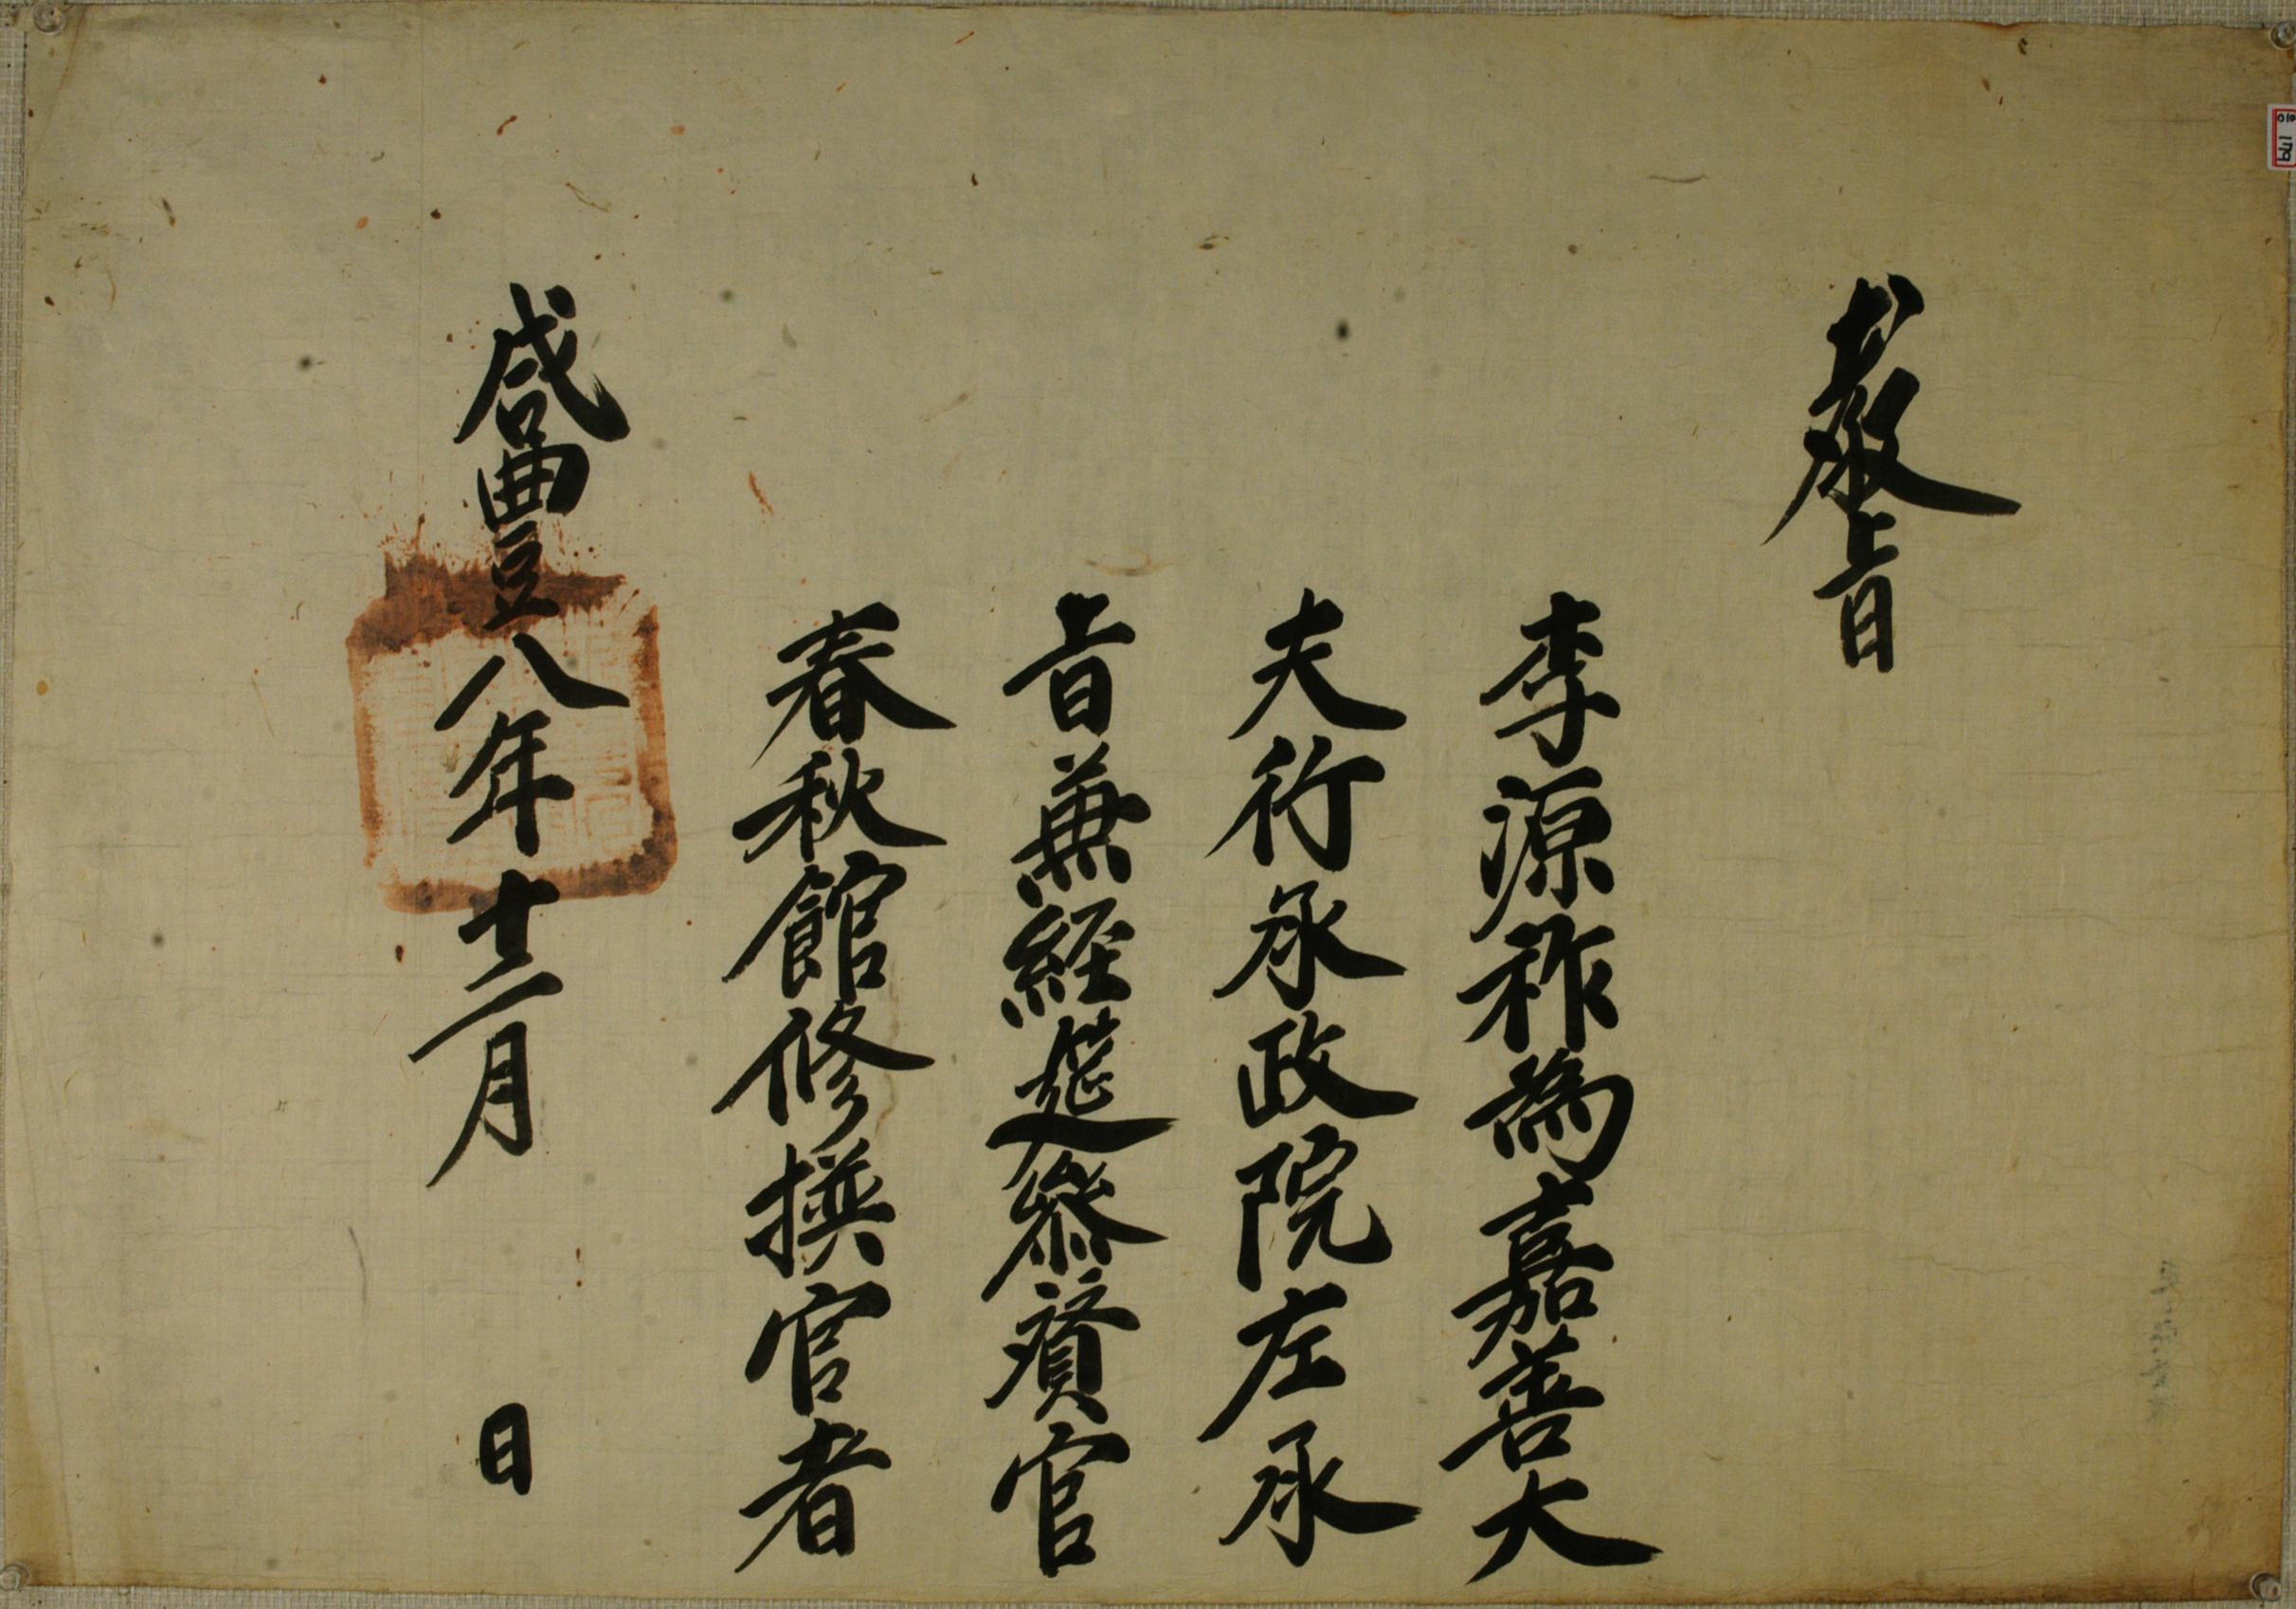 敎旨
李源祚為嘉善大
夫行承政院左承
旨兼經筵參贊官
春秋館修撰官者
咸豊八年十二月 日